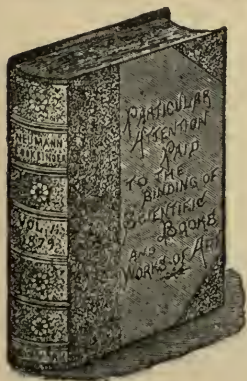 NEUMANN
BOOKBINDER
VOL. 1.
1879
PARTICULAR
ATTENTION
PAID
TO THE
BINDING OF
SCIENTIFIC
BOOKS
AND
WORKS OF ART